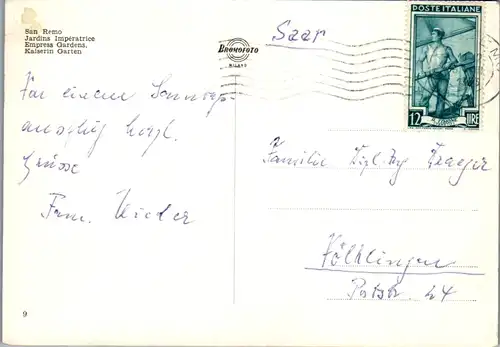 San Remo
Jardins Impératrice
Empress Gardens.
Kaiserin Garten
BROMOFOTO
MILANO
Saar
POSTE ITALIANE
12 LIRE
Von einem Sonntags-
ausflug herzl.
Grüsse
Fam. Wieder
Familie Dipl. Ing.
Völklingen
Poststr. 24
9